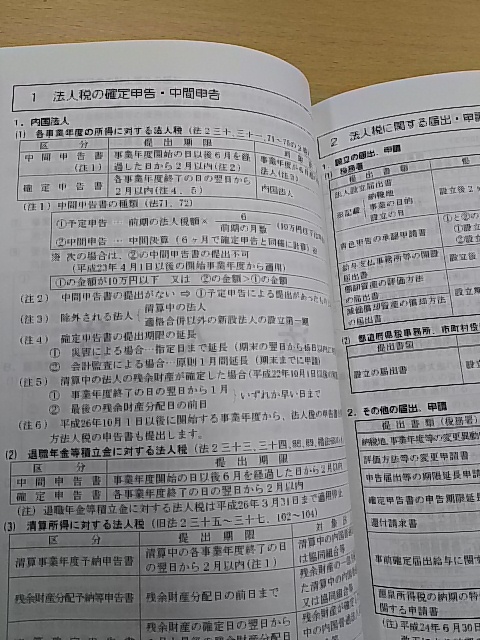 1 法人税の確定申告・中間申告
1. 内国法人
(1) 各事業年度の所得に対する法人税(法2三十、三十一、71~75の2他)
区 分 提 出 期 限 対 象 者
中 間 申 告 書 事業年度開始の日以後6月を経 事業年度が6
(注1) 過した日から2月以内(注2) 法人(注3)
確 定 申 告 書 各事業年度終了の日の翌日から 内国法人
2月以内(注4、5)
(注1)中間申告書の種類(法71、72)
①予定申告 … 前期の法人税額× 6
前期の月数 (10万円以下は
②中間申告 … 中間決算(6ヶ月で確定申告と同様に計算)
※ 次の場合は、②の中間申告書の提出不可
(平成23年4月1日以後の開始事業年度から適用)
①の金額が10万円以下 又は ②の金額>①の金額
(注2) 中間申告書の提出がない ⇒ ①予定申告による提出があったもの
(注3) 除外される法人 清算中の法人
適格合併以外の新設法人の設立第一期
(注4) 確定申告書の提出期限の延長
① 災害による場合…指定日まで延長(期末の翌日から45日以内に
② 会計監査による場合…原則1月間延長(期末までに申請)
(注5) 清算中の法人の残余財産が確定した場合(平成22年10月1日以後の
① 事業年度終了の日の翌日から1月
② 最後の残余財産分配日の前日 いずれか早い日まで
(注6) 平成26年10月1日以後に開始する事業年度から、法人税の申告書の
方法人税の申告書も提出します。
(2) 退職年金等積立金に対する法人税(法2三十三、三十四、88、89、
区 分 提 出 期 限
中 間 申 告 書 事業年度開始の日以後6月を経過した日から2月以内
確 定 申 告 書 各事業年度終了の日の翌日から2月以内
(注) 退職年金等積立金に対する法人税は平成26年3月31日まで適用停止
(3) 清算所得に対する法人税(旧法2三十五~三十七、102~104)
区 分 提 出 期 限 対 象
清算事業年度予納申告書 清算中の各事業年度終了の日 清算中の内国
の翌日から2月以内(注1) は協同組合等
残余財産分配予納等申告書 残余財産分配日の前日まで 残余財産の一部
た清算中の内
又は協同組合
残余財産の確定の日の翌日か 残余財産が確定
2 法人税に関する届出・申請
1. 設立の届出、申請
(1) 税務署
提 出 書 類 提
法人設立届出書 設立後2
納税地
※記載 事業の目的
設立の日
青色申告の承認申請書 ①と②の
①設立
②設立
給与支払事務所等の開設 設立後
届出書
棚卸資産の評価方法
の届出書 設立期
減価償却資産の償却方法
の届出書
(2) 都道府県税事務所、市町村役
提出書類
設立の届出書 設立
2. その他の届出、申請
提出書類(税務署)
納税地、事業年度等の変更異動
評価方法等の変更申請書
申告届出等の期限延長申請
確定申告書の申告期限延長
還付請求書
事前確定届出給与に関す
源泉所得税の納期の特
関する申請書
(注)平成24年6月30日